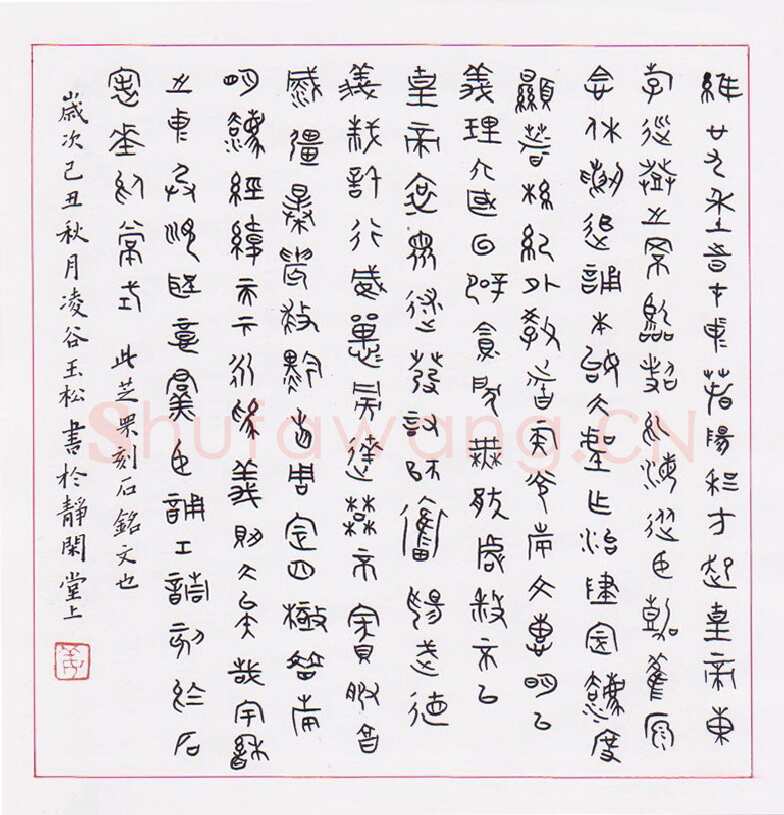 維廿九年時在中春陽和方起皇帝東
游巡登之罘臨照于海從臣嘉觀原
念休烈追誦本始大聖作治建定法度
顯箸綱紀外教諸侯光施文惠明以
義理六國回辟貪戾無厭虐殺不已
皇帝哀眾遂發討師奮揚武德
義誅信行威燀旁達莫不賓服烹
滅彊暴振救黔首周定四極普施
明法經緯天下永為義則大矣哉宇縣
之中承順聖意群臣誦功請刻于石
表垂于常式 此芝罘刻石銘文也
歲次己丑秋月凌谷玉松書於靜閑堂上
Shufawang.CN